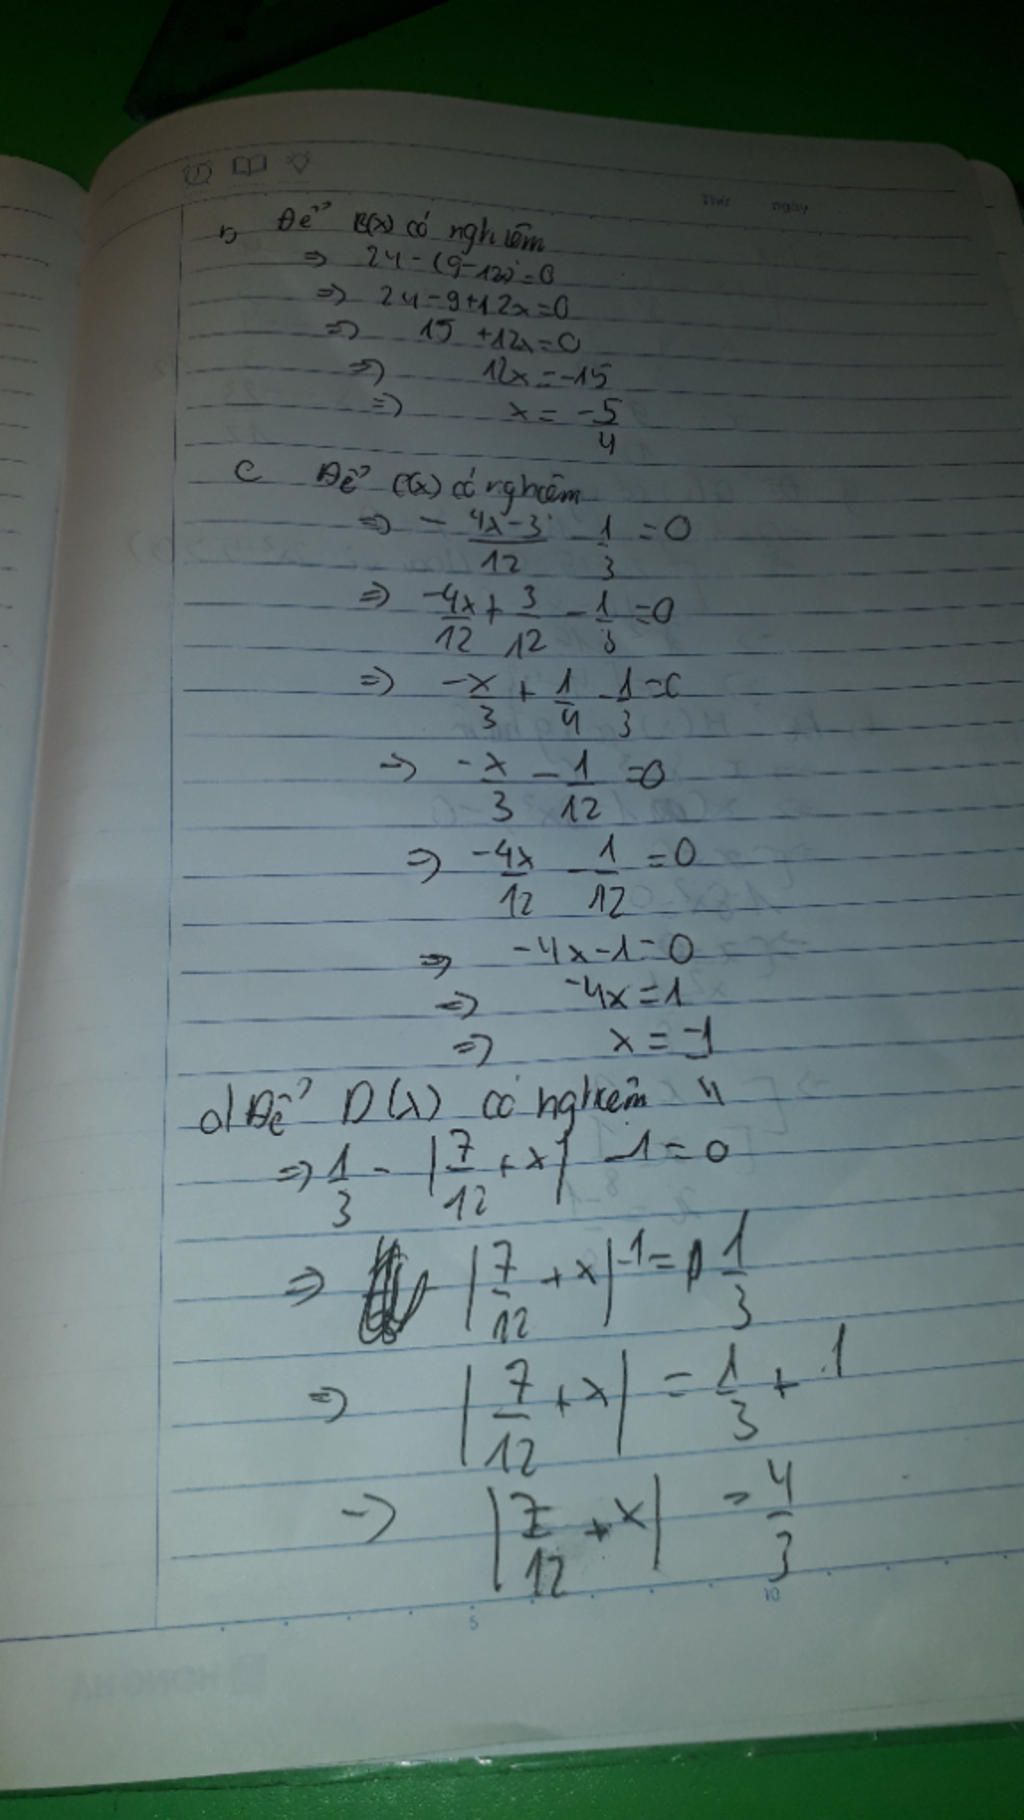 Thứ ngày
b, Để B(x) có nghiệm
⇒ 24-(9-12x)=0
⇒ 24-9+12x=0
⇒ 15 +12x=0
⇒ 12x=-15
⇒ x= -5/4
c Để C(x) có nghiệm
⇒ - 4x-3/12 - 1/3 =0
⇒ -4x/12 + 3/12 - 1/3 =0
⇒ -x/3 + 1/4 - 1/3 =0
⇒ -x/3 - 1/12 =0
⇒ -4x/12 - 1/12 =0
⇒ -4x-1=0
⇒ -4x=1
⇒ x= -1/4
d/ Để D(x) có nghiệm
⇒ 1/3 - |7/12 + x| -1=0
⇒ |7/12 + x| -1= 1/3
⇒ |7/12 + x| = 1/3 + 1
⇒ |7/12 + x| = 4/3
5 10
HONG HA